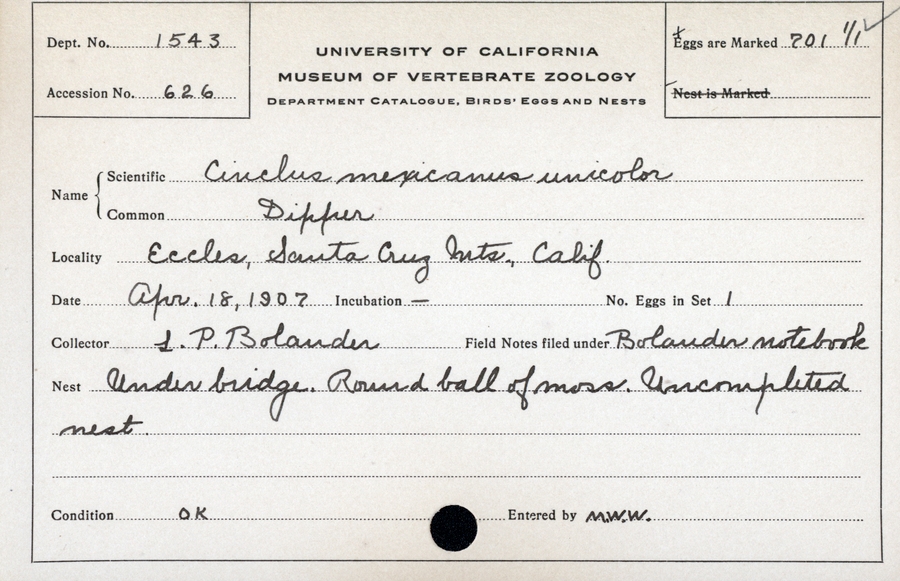 Dept. No. 1543
Accession No. 626
UNIVERSITY OF CALIFORNIA
MUSEUM OF VERTEBRATE ZOOLOGY
DEPARTMENT CATALOGUE, BIRDS' EGGS AND NESTS
Eggs are Marked 701 1/1
Nest is Marked
Name
Scientific Cinclus mexicanus unicolor
Common Dipper
Locality Eccles, Santa Cruz Mts., Calif.
Date Apr. 18, 1907 Incubation — No. Eggs in Set 1
Collector L. P. Bolander Field Notes filed under Bolander notebook
Nest Under bridge. Round ball of moss. Uncompleted
nest.
Condition OK Entered by M.W.W.